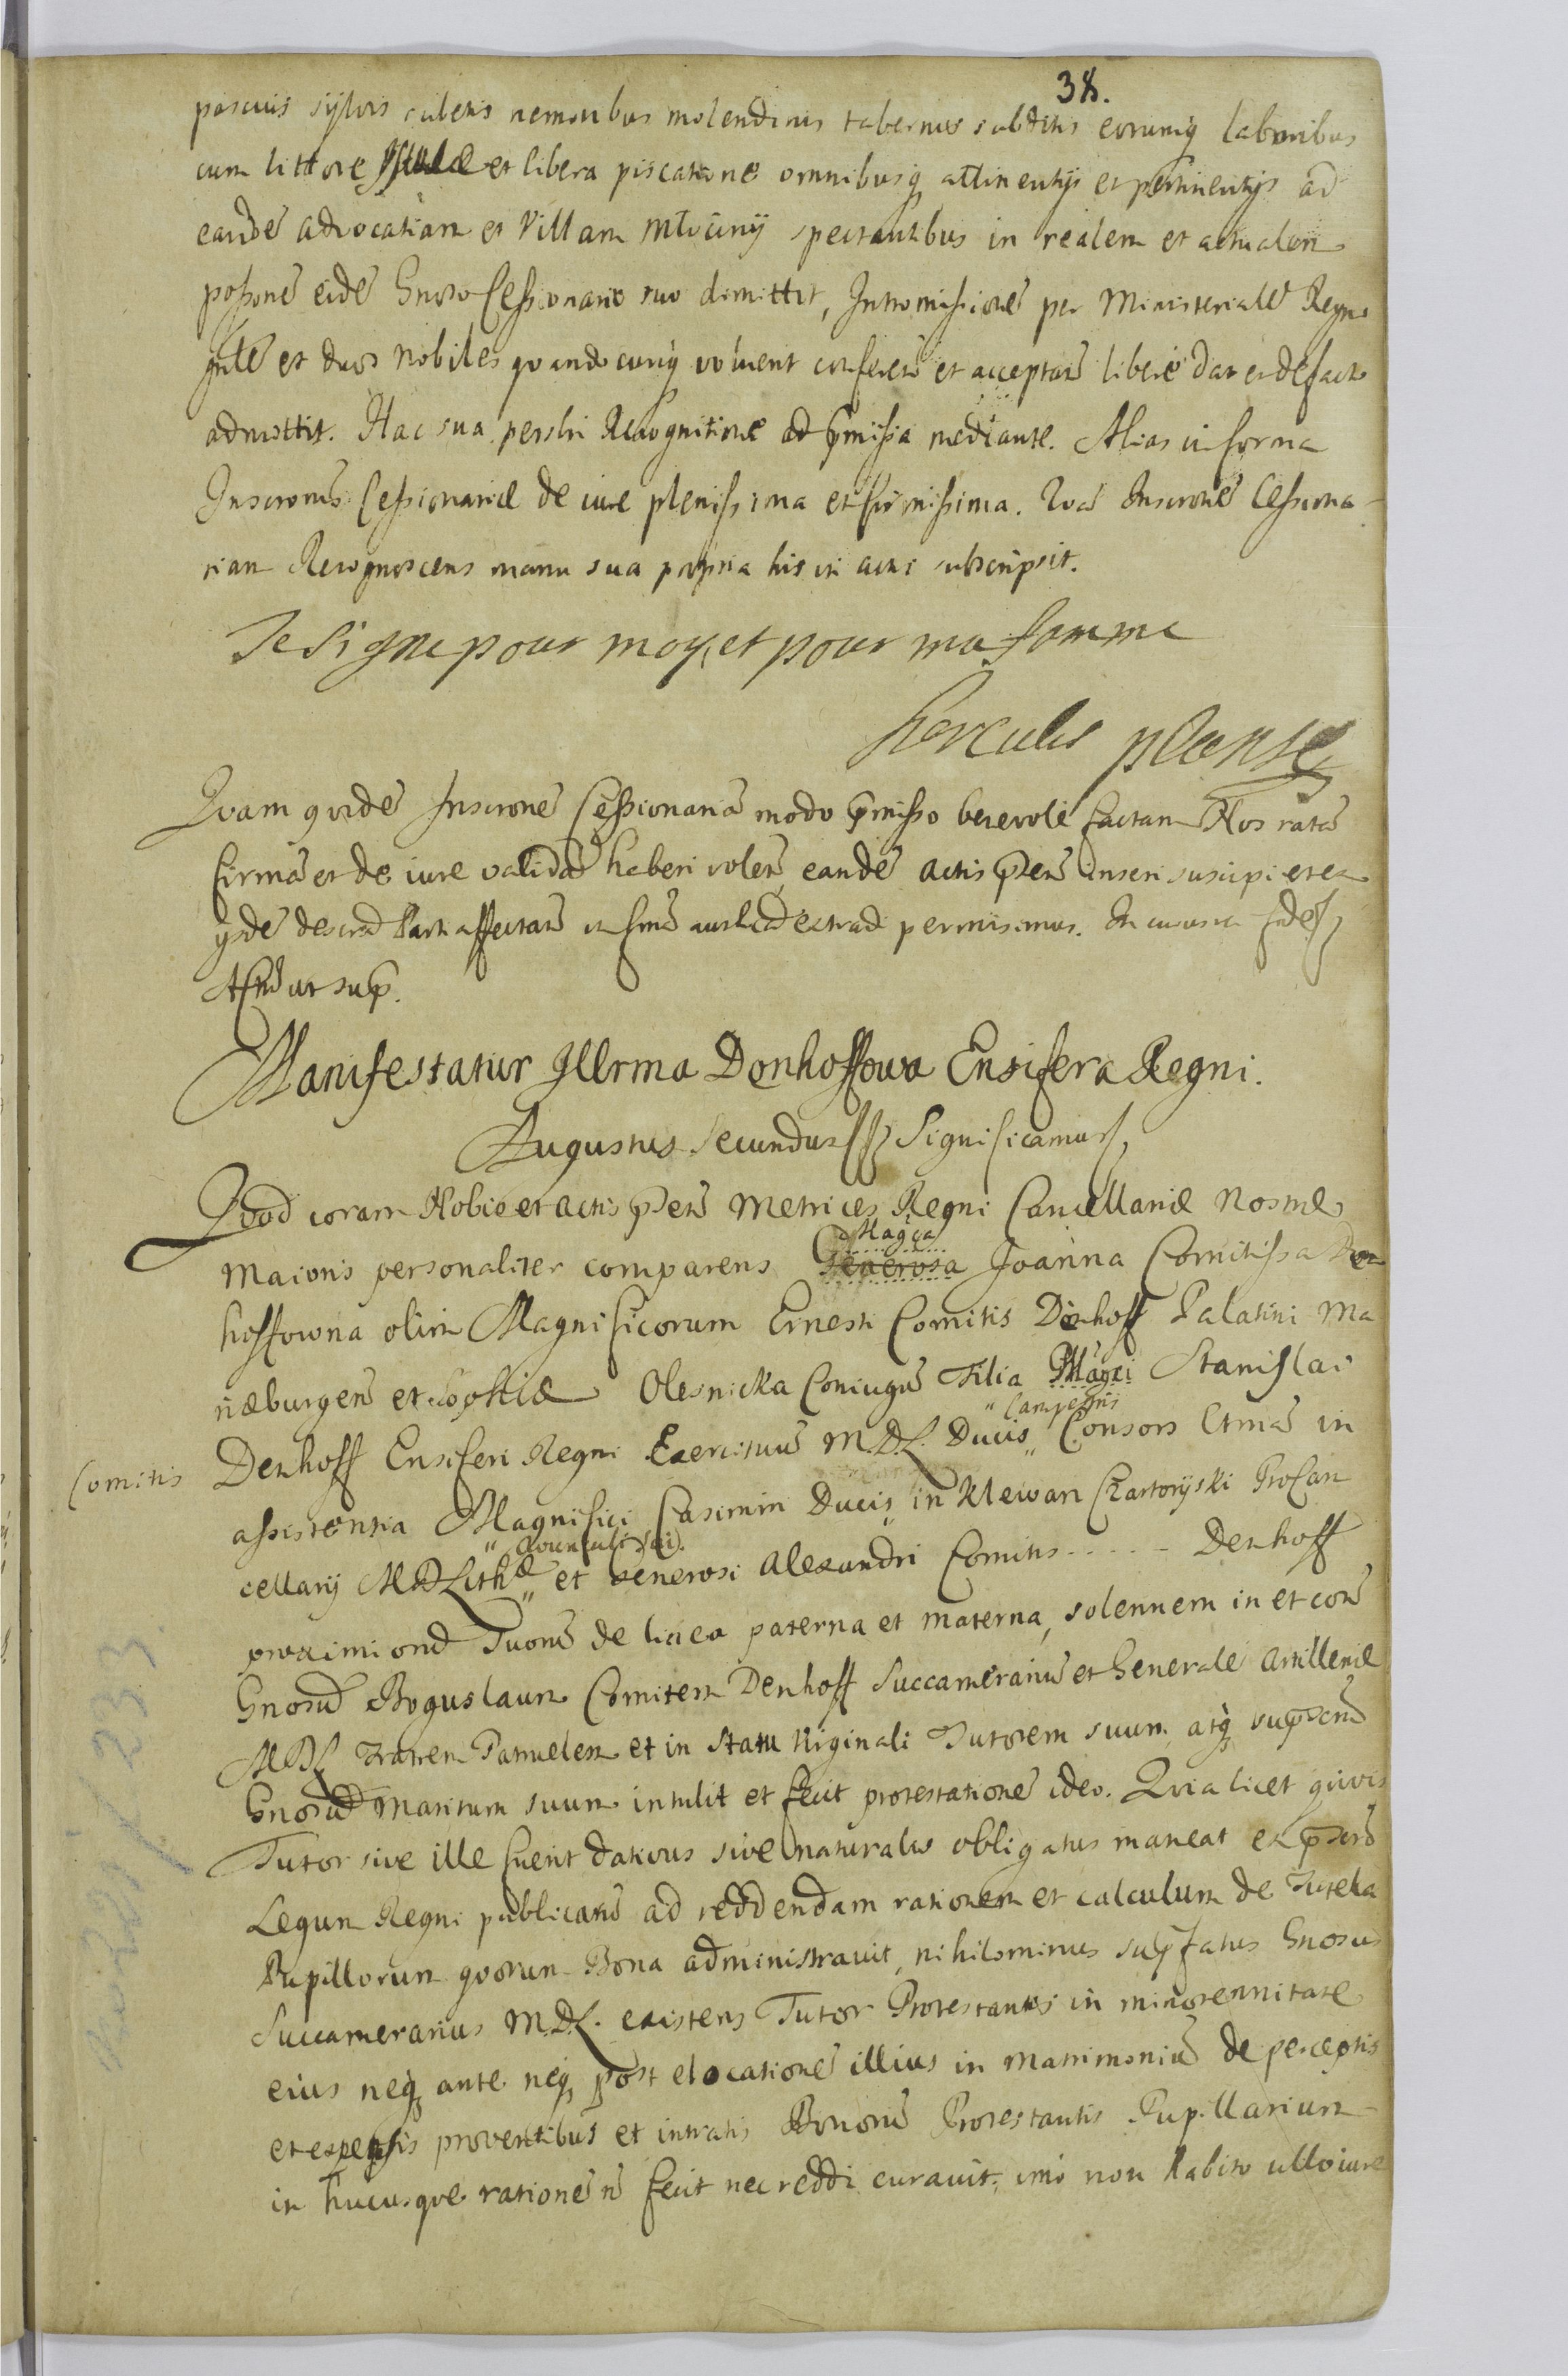 38.
pascuis sylvis rubetis nemoribus molendinis tabernis subditis eorumq laboribus
cum littore Istulæ et libera piscatione omnibusq attinentijs et pertinentijs ad
eande advocatiam et Villam Mlociny spectantibus in realem et actualem
poßone eide Gnoso Ceßionario suo dimittit, Intromißione per Ministeriale Regni
gnle et duos Nobiles quandocunq voluerit conferen et acceptan libere dar et de facto
admittit. Hac sua persli Recognitione ad pmißa mediante. Alias in forma
Inscronis Ceßionariæ de iure plenißima et firmißima. Quã Inscrone Ceßiona-
riam Recognoscens manu sua propria his in actis subscripsit.
Je Signe pour moy, et pour ma famme
hercules
Quam quide Inscrone Ceßionaria modo pmißo benevole factam Nos rata
firma et de iure valida haberi volen, eande actis pšen inseri suscipi et ea
affectan permisimus. In cuius rei fide
ut sup.
Manifestatur Illrma Donhoffowa Ensifera Regni.
Augustus Secundus Significamus
Quod coram Nobis et actis pšen Metrices Regni Cancellariæ Nostræ
Magca
Maioris personaliter comparens Generosa Joanna Comitißa Den
hoffowna olim Magnificorum Ernesti Comitis Dönhoff Palatini Ma
riæburgen et Sophiæ Olesnicka Coniugum Filia Magci Stanislai
" Campestris
Comitis
Denhoff Ensiferi Regni Exercituum M.D.L. Ducis " Consors Ctma in
aßistentia Magnifici Casimiri Ducis " in Klewan Czartoryski ProCan
" Avunculi sui.
cellarij M.D. Lithæ " et Generosi Alexandri Comitis - - - - - Denhoff
proximiorum Suorum de linea paterna et materna, solennem in et con
Gnosum Boguslaum Comitem Denhoff Succamerarium et Generale Artilleriæ
M.D.L. Fratrem Patruelem et in Statu Virginali Tutorem suum, atq supšcrm
Gnosum Maritum suum intulit et fecit protestatione ideo. Quia licet quivis
Tutor sive ille fuerit dativus sive naturalis obligatus maneat ex pšcro
Legum Regni publicarum ad reddendam rationem et calculum de Tutela
Pupillorum quorum Bona administravit, nihilominus supfatus Gnosus
Succamerarius M.D.L. existens Tutor Protestantis in minorennitate
eius neq ante neq post elocatione illius in Matrimonium de perceptis
et expensis proventibus et intratis Bonorum Protestantis Pupillarium
in hucusque ratione n fecit nec reddi curavit, imo non habito ullo iure